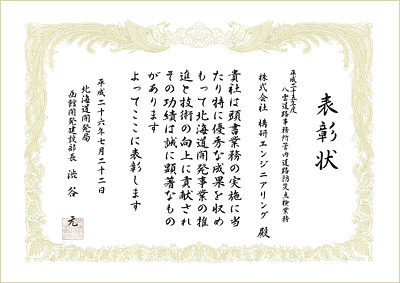 表彰状
平成二十五年度
八雲道路事務所管内道路防災点検業務
株式会社 構研エンジニアリング 殿
貴社は頭書業務の実施に当
たり特に優秀な成果を収め
もって北海道開発事業の推
進と技術の向上に貢献され
その功績は誠に顕著なもの
があります
よってここに表彰します
平成二十六年七月二十二日
北海道開発局
函館開発建設部長 渋谷 元